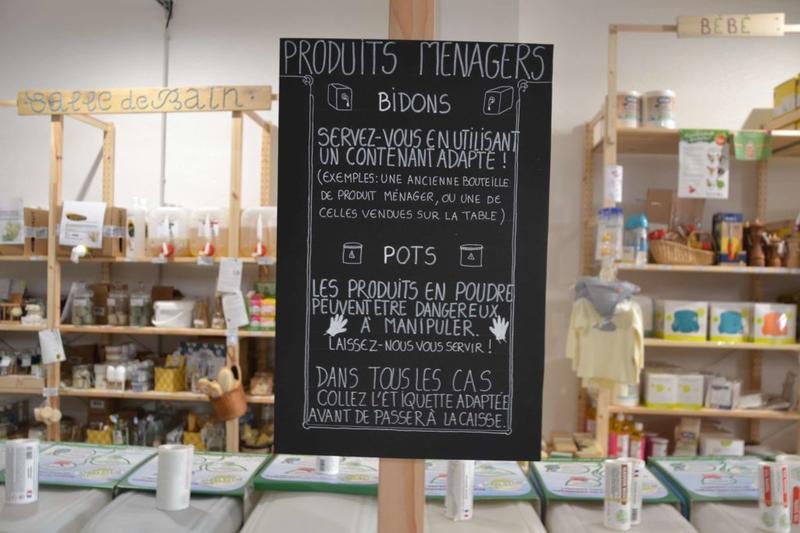 PRODUITS MENAGERS
BIDONS
SERVEZ-VOUS EN UTILISANT
UN CONTENANT ADAPTÉ !
(EXEMPLES: UNE ANCIENNE BOUTEILLE
DE PRODUIT MÉNAGER, OU UNE DE
CELLES VENDUES SUR LA TABLE)
POTS
LES PRODUITS EN POUDRE
PEUVENT ETRE DANGEREUX
À MANIPULER.
LAISSEZ-NOUS VOUS SERVIR !
DANS TOUS LES CAS
COLLEZ L'ETIQUETTE ADAPTÉE
AVANT DE PASSER À LA CAISSE.
Salle de Bain
BÉBÉ